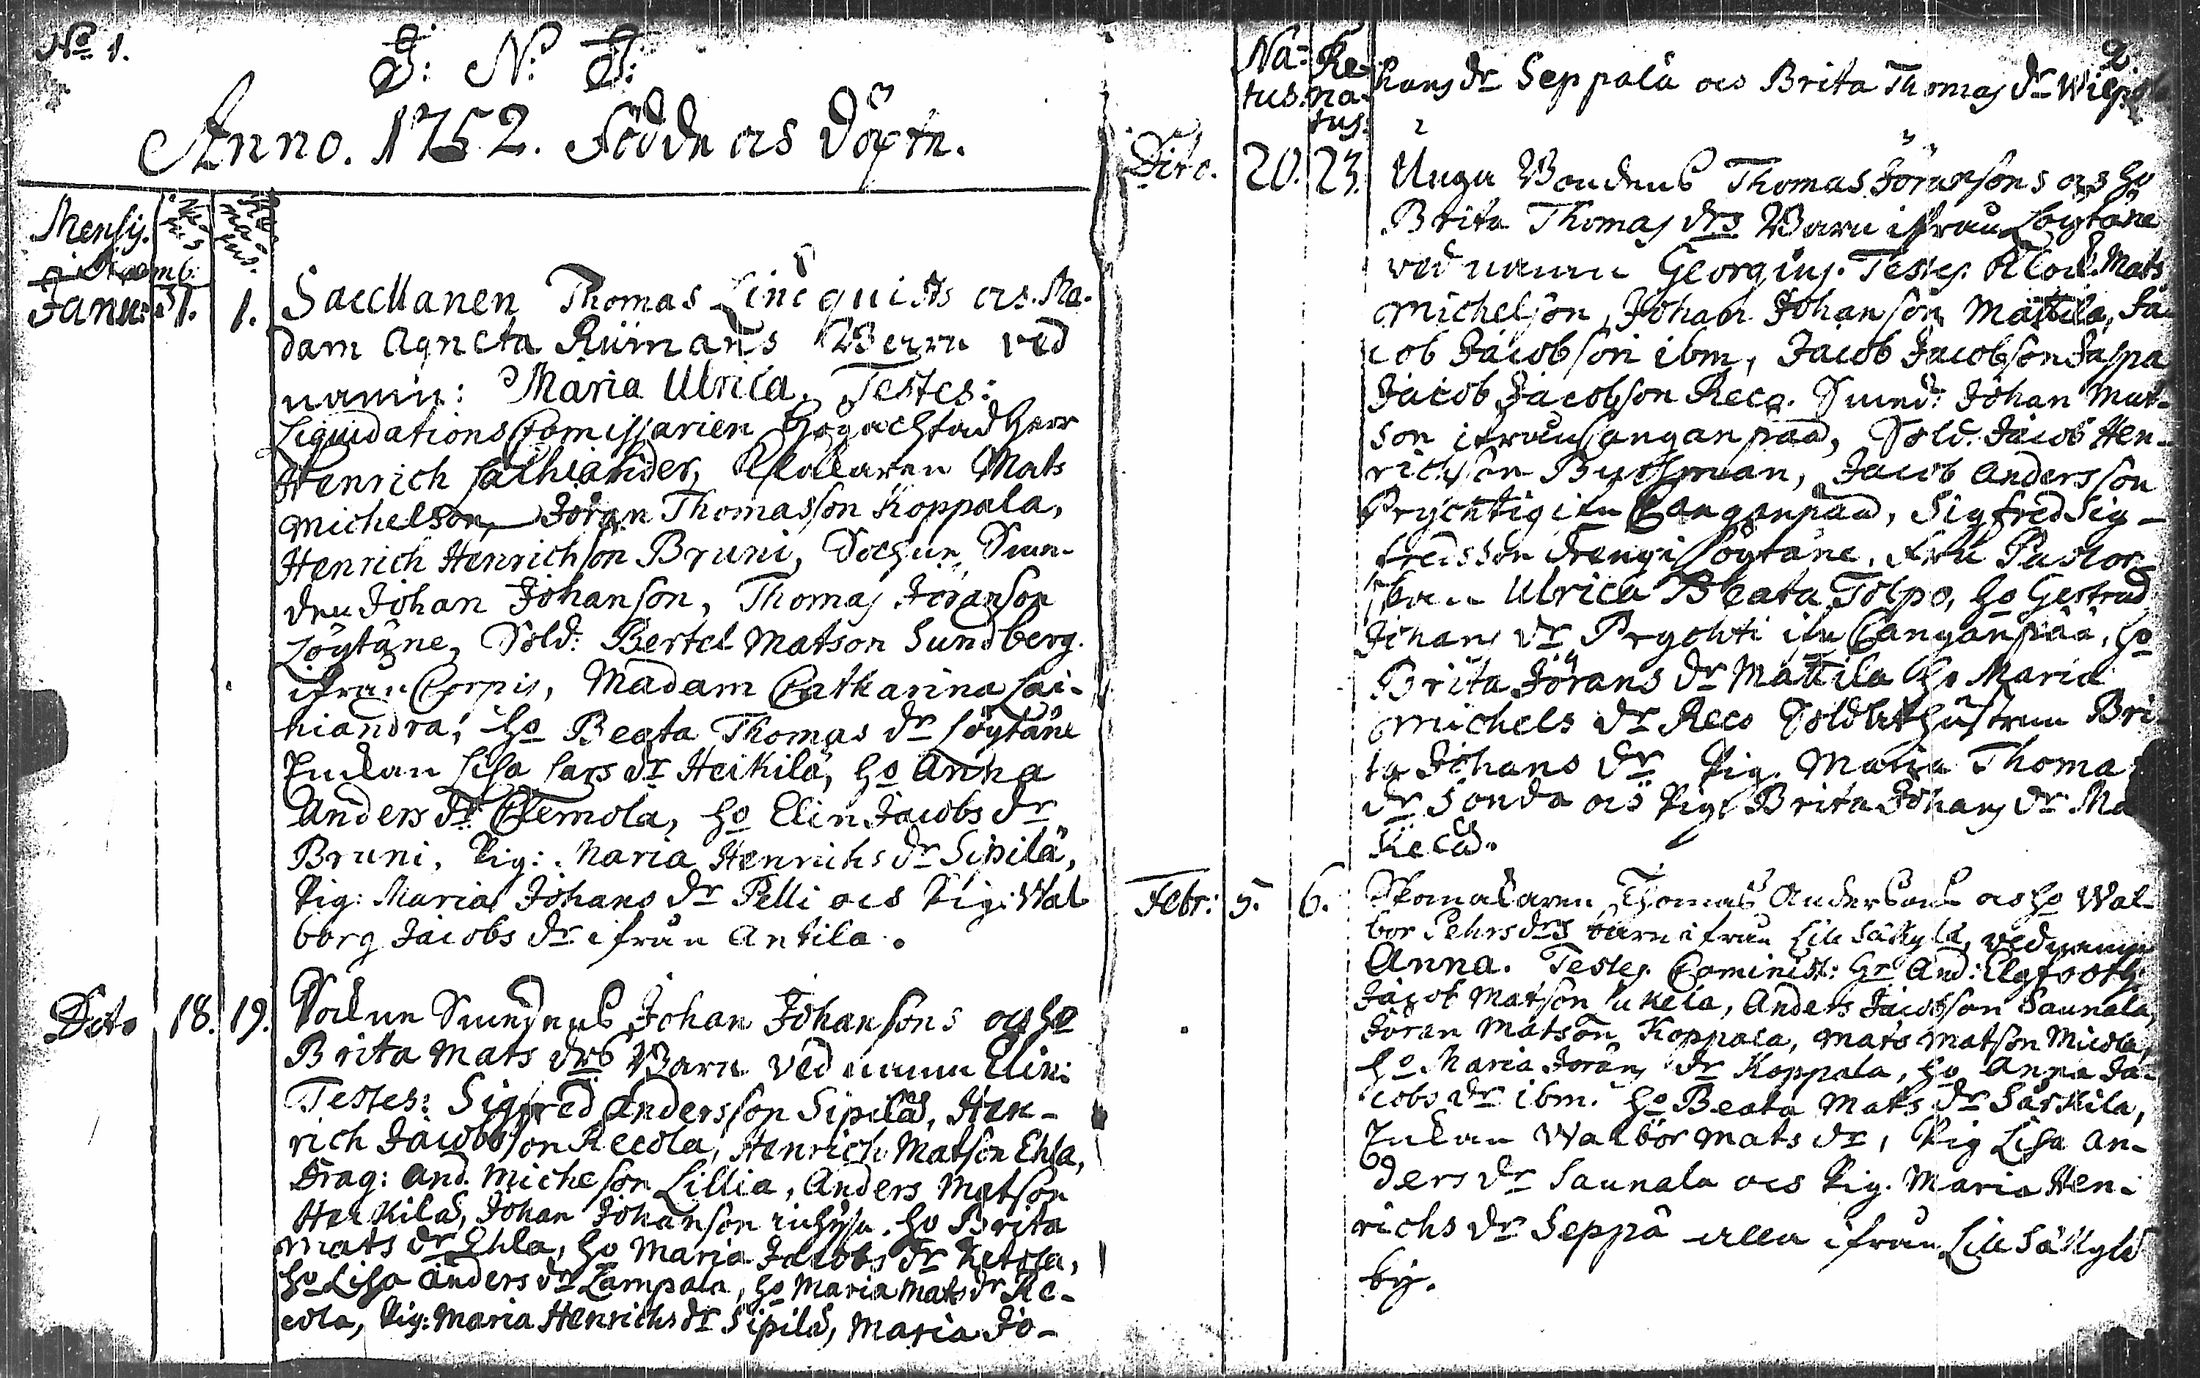 No 1.
J: N: J:
Anno. 1752. Födde och döpte.
Mensis. Natus Renatus.
Decemb:
Janu: 31. 1. Sacellanen Thomas Lincquists och Ma-
dam Agneta Riimans Barn ved
namn: Maria Ulrica. Testes:
Liquidations Comissarien Högachtad Herr
Henrich Laihiander, Klockaren Mats
Michelson, Jöran Thomasson Koppala,
Henrich Henrichson Bruni, Sochne Sme-
den Johan Johanson, Thomas Jöranson
Löytäne, Sold: Bertel Matson Sundberg.
ifrån Corpis, Madam Catharina Lai-
hiandra, ho Beata Thomas dr Löytäne
Enckan Lisa Lars dr Heikilä, ho Anna
Anders dr Clemola, ho Elin Jacobs dr
Bruni, Pig: Maria Henrichs dr Sipilä,
Pig: Maria Johans dr Pelli och Pig: Wal-
borg Jacobs dr ifrån Antila.
Dito 18. 19. Sockne Smedens Johan Johansons och ho
Brita Mats drs Barn ved namn Elin:
Testes: Sigfred Andersson Sipilä, Hen-
rich Jacobsson Recola, Henrich Matson Ehla,
Drag: And. Micheson Lillia, Anders Matson
Heikilä, Johan Johanson ho Brita
Mats dr Ehla, ho Maria Jacobs dr Ketola,
ho Lisa Anders dr Lampala, ho Maria Mats dr Re-
cola, Pig: Maria Henrichs dr Sipilä, Maria Jo-
2.
Na-
tus. Re-
na-
tus.
hans dr Seppälä och Brita Thomas dr
Dito. 20. 23. Unga Bondens Thomas Jöransons och ho
Brita Thomas drs Barn ifrån Löytäne
ved namn Georgius. Testes. Klock. Mats
Michelson, Johan Johanson Mattila, Ja-
cob Jacobson ibm, Jacob Jacobson Jaspa
Jacob Jacobson Reco. Smed: Johan Mat-
son ifrån Canganpää, Sold. Jacob Hen-
richson Buschman, Jacob Andersson
Prychtig ifn Canganpää, Sigfred Sig-
fredsson Frengi Löytäne, Fru Pastor-
skan Ulrica Beata Polpo, ho Gertrud
Johans dr Prychti ifn Canganpää, ho
Brita Jörans dr Mattila ho Maria
Michels dr Reco Soldat hustrun Bri-
ta Johans dr Pig. Maria Thomas
dr Sonda och Pig Brita Johans dr Ma
Kelä.
Febr: 5. 6. Skomakaren Thomas Andersons och ho Wal-
bor Pehrs drs barn ifrån Lill Säkylä, ved namn
Anna. Testes. Cominist: Hr And: Elgfooth.
Jacob Matson Ukela, Anders Jacobson Saunala,
Jöran Matson Koppala, Mats Matson Micola,
ho Maria Jörans dr Koppala, ho Anna Ja-
cobs dr ibm. ho Beata Mats dr Särkilä,
Enckan Walbor Mats dr, Pig Lisa An-
ders dr Saunala och Pig. Maria Hen-
richs dr Seppä alla ifrån Lill Säkylä
by.